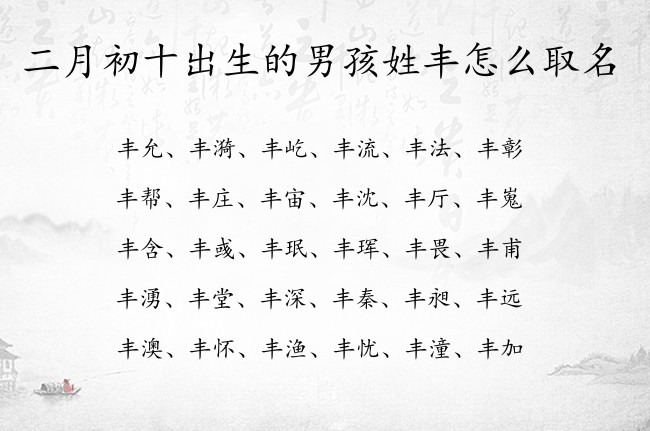 二月初十出生的男孩姓丰怎么取名
丰允、丰漪、丰屹、丰流、丰法、丰彰
丰帮、丰庄、丰宙、丰沈、丰厅、丰嵬
丰含、丰彧、丰珉、丰珲、丰畏、丰甫
丰湧、丰堂、丰深、丰秦、丰昶、丰远
丰澳、丰怀、丰渔、丰忧、丰潼、丰加